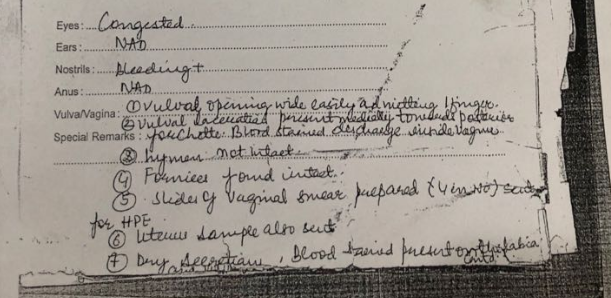 Eyes : Congested
Ears : NAD
Nostrils : Bleeding+
Anus : NAD
Vulva/Vagina : ① Vulval opening wide easily admitting 1 finger.
② Vulval laceration present medially towards posterior
Special Remarks : fourchette. Blood stained discharge inside vagina
③ hymen not intact
④ Fornices found intact.
⑤ Slides of vaginal smear prepared (4 in no) sent
for HPE
⑥ Uterus sample also sent
⑦ Dry secretions, Blood stained present on